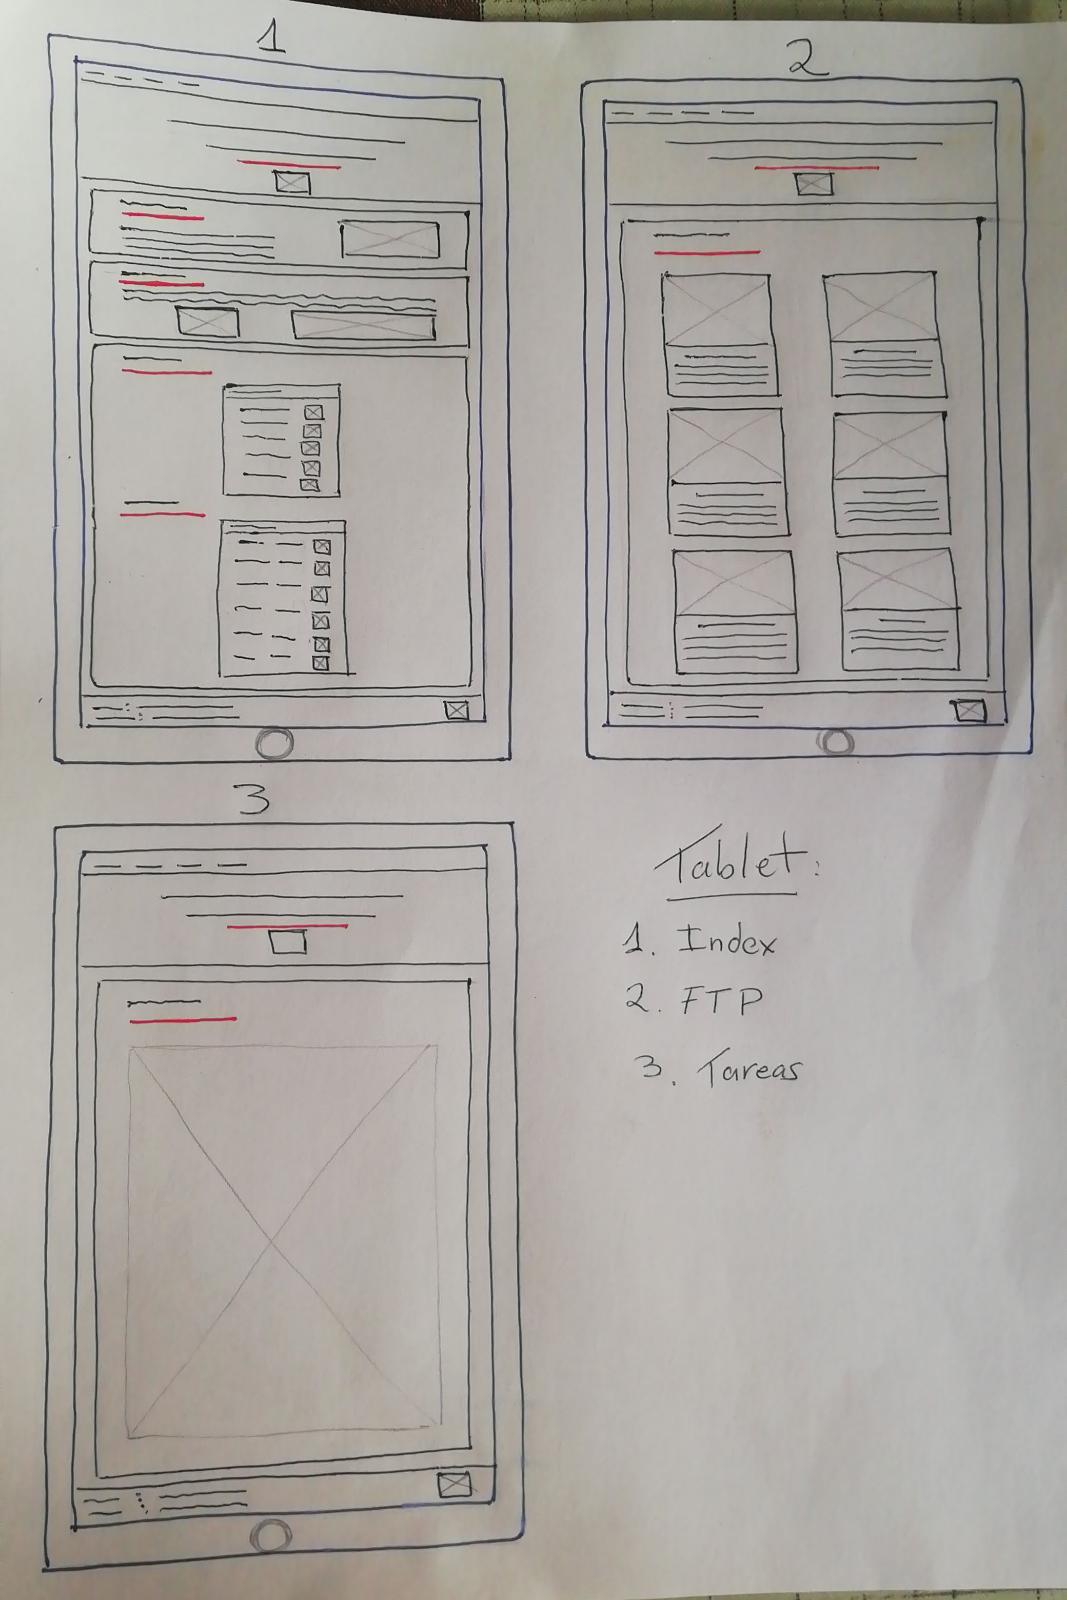 1
2
3
Tablet:
1. Index
2. FTP
3. Tareas